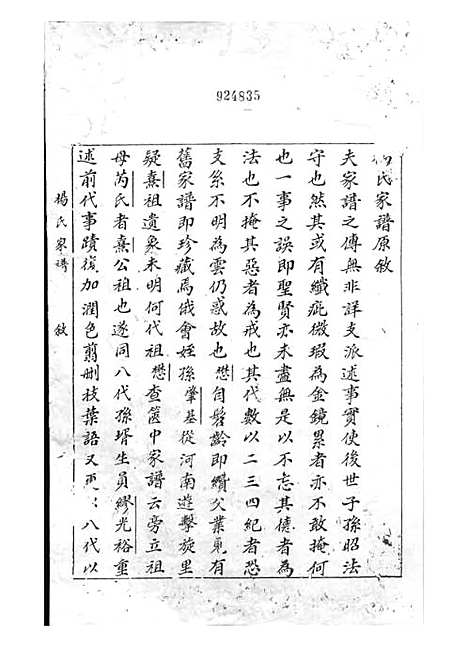 924835
楊氏家譜原敘
夫家譜之傳無非詳支派述事實使後世子孫昭法
守也然其或有纖疵微瑕為金鏡累者亦不敢掩何
也一事之誤即聖賢亦未盡無是以不忘其德者為
法也不掩其惡者為戒也其代數以二三四紀者恐
支系不明為雲仍惑故也懋自髫齡即纘父業見有
舊家譜即珍藏焉俄會姪孫肇基從河南遊擊旋里
疑熹祖遺象未明何代祖懋查篋中家譜云旁立祖
母芮氏者熹公祖也遂同八代孫壻生員繆光裕重
述前代事蹟復加潤色翦刪枝葉語又更八代以
楊氏家譜 敘